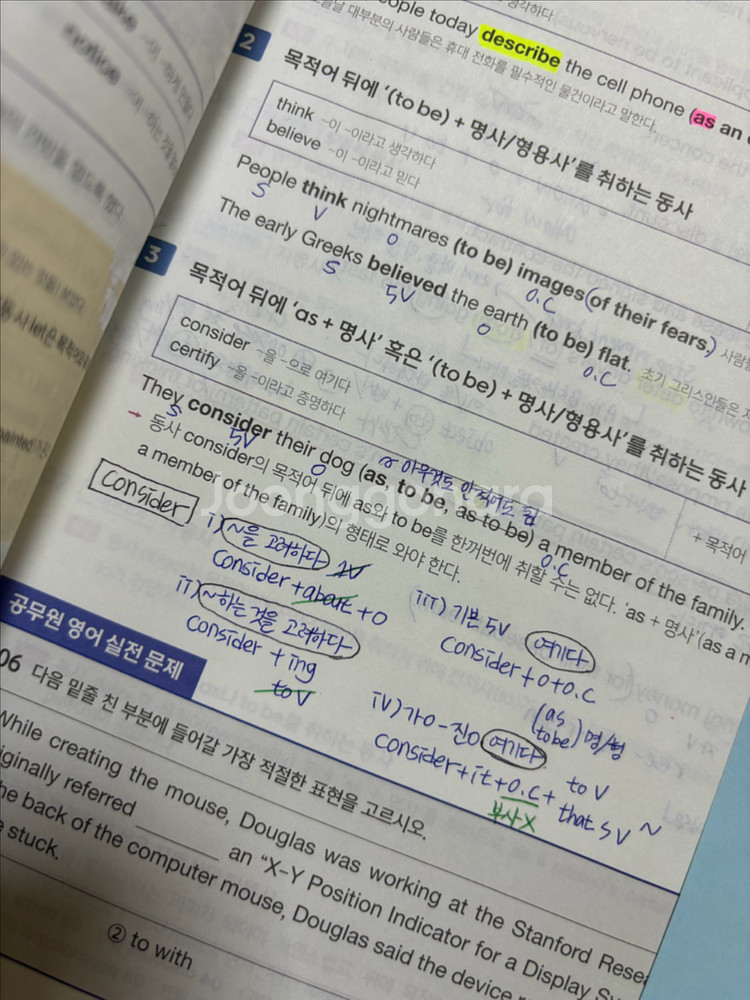 people today describe the cell phone (as an
오늘날 대부분의 사람들은 휴대 전화를 필수적인 물건이라고 말한다.
2 목적어 뒤에 '(to be) + 명사/형용사'를 취하는 동사
think ~이 ~이라고 생각하다
believe ~이 ~이라고 믿다
People think nightmares (to be) images (of their fears.)
S V O O.C
The early Greeks believed the earth (to be) flat. 초기 그리스인들은
S 5V O O.C
3 목적어 뒤에 'as + 명사' 혹은 '(to be) + 명사/형용사'를 취하는 동사
consider ~을 ~으로 여기다
certify ~을 ~이라고 증명하다
They consider their dog (as, to be, as to be) a member of the family.
S 5V O O.C
아무것도 안 적어도 됨
→ 동사 consider의 목적어 뒤에 as와 to be를 한꺼번에 취할 수는 없다. 'as + 명사'(as a m
a member of the family)의 형태로 와야 한다.
+ 목적어
Consider
i) ~을 고려하다
consider + about + O
ii) ~하는 것을 고려하다
consider + ing
to V
iii) 기본 5V 여기다
consider + O + O.C
(as
to be) 명/형
iv) 가O-진O 여기다
consider + it + O.C + to V
that S V ~
부사 X
Joonggonara
공무원 영어 실전 문제
06 다음 밑줄 친 부분에 들어갈 가장 적절한 표현을 고르시오.
While creating the mouse, Douglas was working at the Stanford Resea
iginally referred ________ an "X-Y Position Indicator for a Display Sy
he back of the computer mouse, Douglas said the device
stuck.
② to with